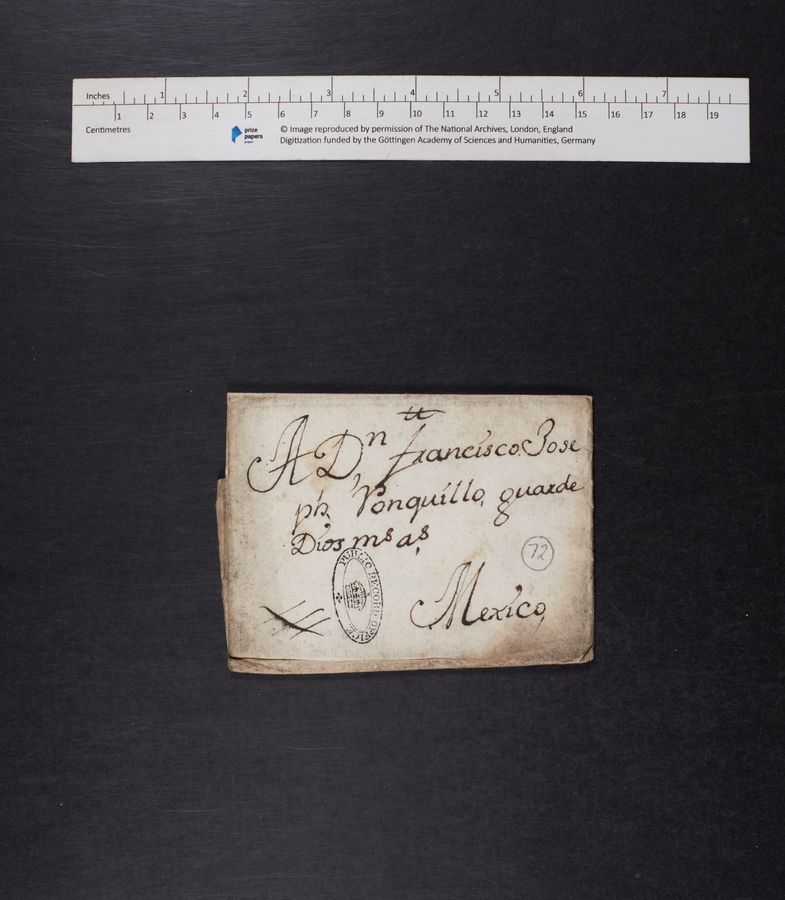 Inches 1 2 3 4 5 6 7
1 2 3 4 5 6 7 8 9 10 11 12 13 14 15 16 17 18 19
Centimetres
prize papers
© Image reproduced by permission of The National Archives, London, England
Digitization funded by the Göttingen Academy of Sciences and Humanities, Germany
A Dn francisco Jose
ph, Ponquillo, guarde
Dios ms as,
72
PUBLIC RECORD OFFICE
Mexico,